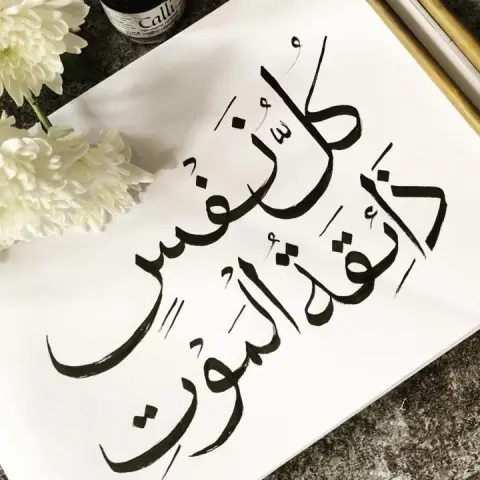 Calli
كُلُّ نَفْسٍ
ذَائِقَةُ الْمَوْتِ